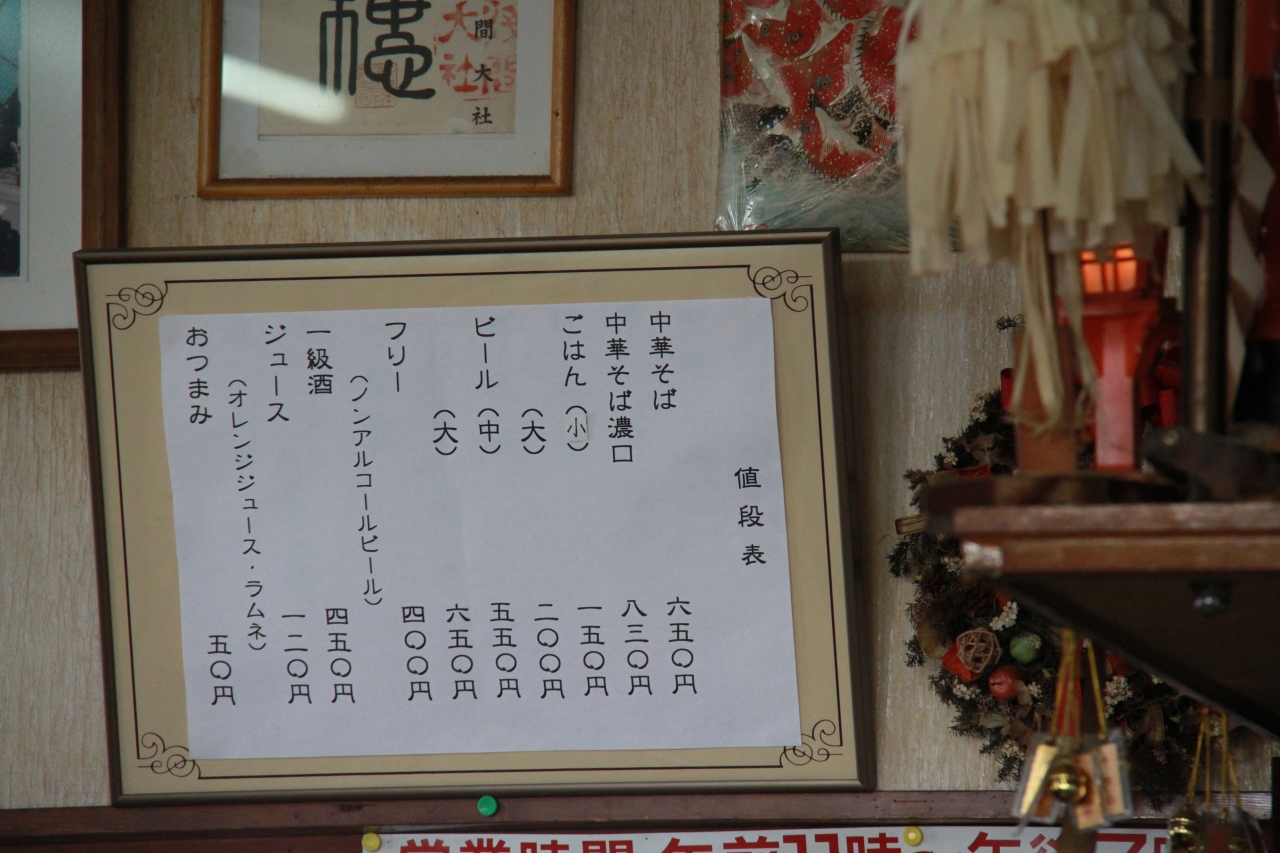 穏
間大社
大社
値段表
中華そば 六五〇円
中華そば濃口 八三〇円
ごはん(小) 一五〇円
(大) 二〇〇円
ビール(中) 五五〇円
(大) 六五〇円
フリー 四〇〇円
(ノンアルコールビール)
一級酒 四五〇円
ジュース 一二〇円
(オレンジジュース・ラムネ)
おつまみ 五〇円
営業時間 午前11時～午後7時